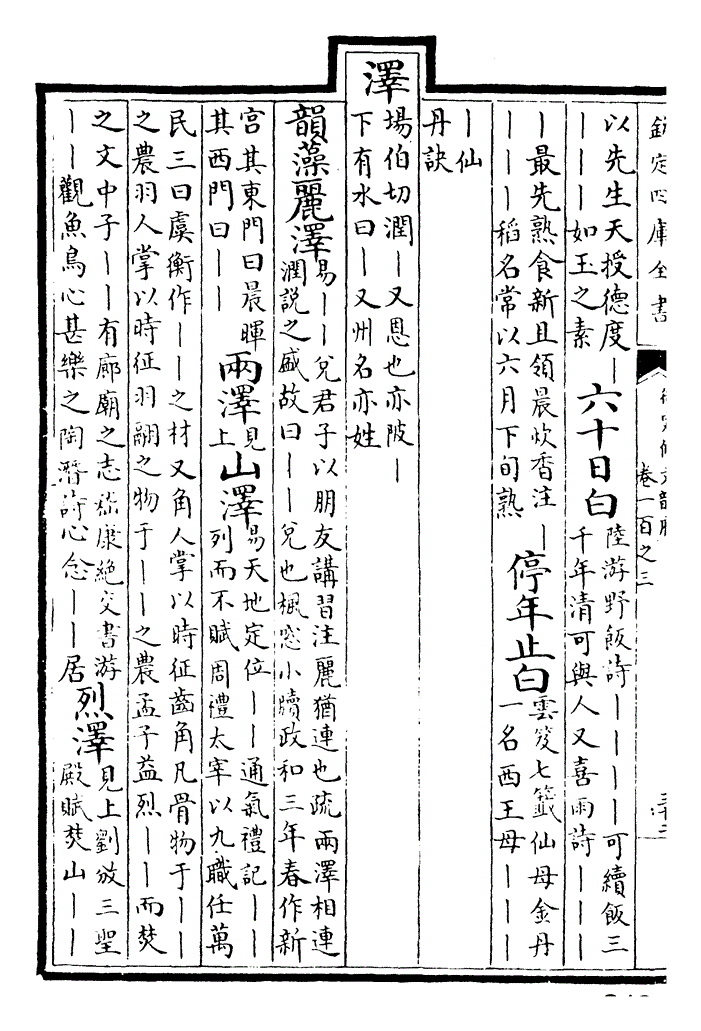 欽定四庫全書
卷一百之三
以先生天授德度｜
｜｜｜如玉之素
六十日白
陸游野飯詩｜｜｜｜可續飯三
千年清可與人又喜雨詩｜｜｜
｜最先熟食新且領晨炊香注｜
｜｜｜稻名常以六月下旬熟
停年止白
雲笈七籤仙母金丹
一名西王母｜｜｜
｜仙
丹訣
澤
場伯切潤｜又恩也亦陂｜
下有水曰｜又州名亦姓
韻藻麗澤
易｜｜兌君子以朋友講習注麗猶連也疏兩澤相連
潤說之盛故曰｜｜兌也楓窓小牘政和三年春作新
宮其東門曰晨暉
其西門曰｜｜
兩澤
見
上
山澤
易天地定位｜｜通氣禮記｜｜
列而不賦周禮太宰以九職任萬
民三曰虞衡作｜｜之材又角人掌以時征齒角凡骨物于｜｜
之農羽人掌以時征羽翮之物于｜｜之農孟子益烈｜｜而焚
之文中子｜｜有廊廟之志嵇康絶交書游
｜｜觀魚鳥心甚樂之陶潛詩心念｜｜居
烈澤
見上劉攽三聖
殿賦焚山｜｜